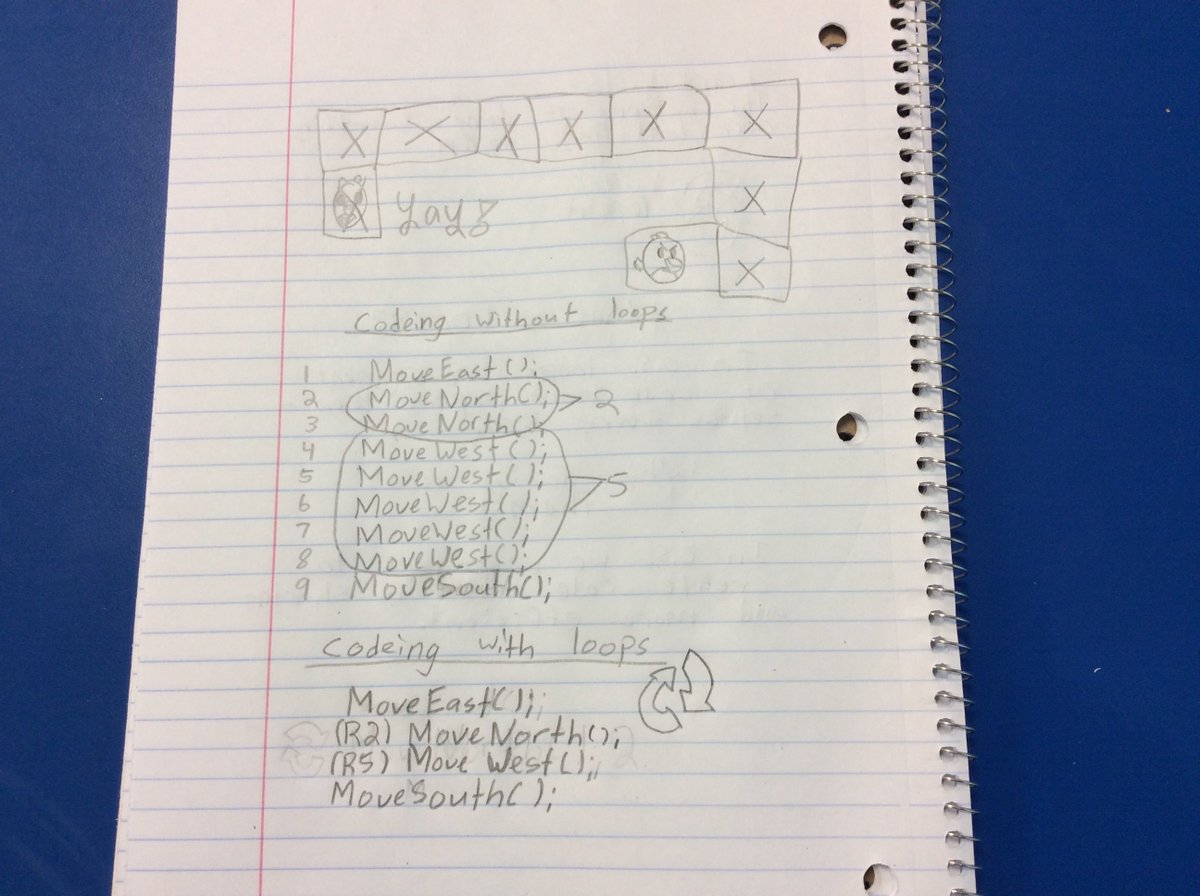 X X X X X X
Yayz X
X
Codeing without loops
1 MoveEast();
2 MoveNorth(); > 2
3 MoveNorth();
4 MoveWest();
5 MoveWest(); > 5
6 MoveWest();
7 MoveWest();
8 MoveWest();
9 MoveSouth();
Codeing with loops
MoveEast();
(R2) MoveNorth();
(R5) Move West();
MoveSouth();